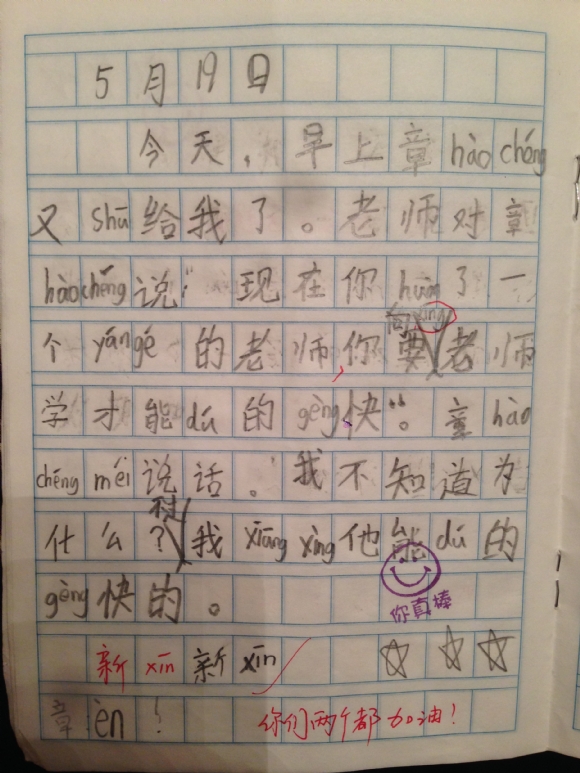 5月19日
今天，早上章hào chéng
又shū给我了。老师对章
hào chéng说：“现在你huàn了一
个yángé的老师，你要向老师
学才能dú的gèng快”。章hào
chéng méi说话。我不知道为
什么？我xiāng xìng他能dú的
gèng快的。
你真棒
新 xīn 新 xīn ☆ ☆ ☆
章èn！ 你们两个都加油！